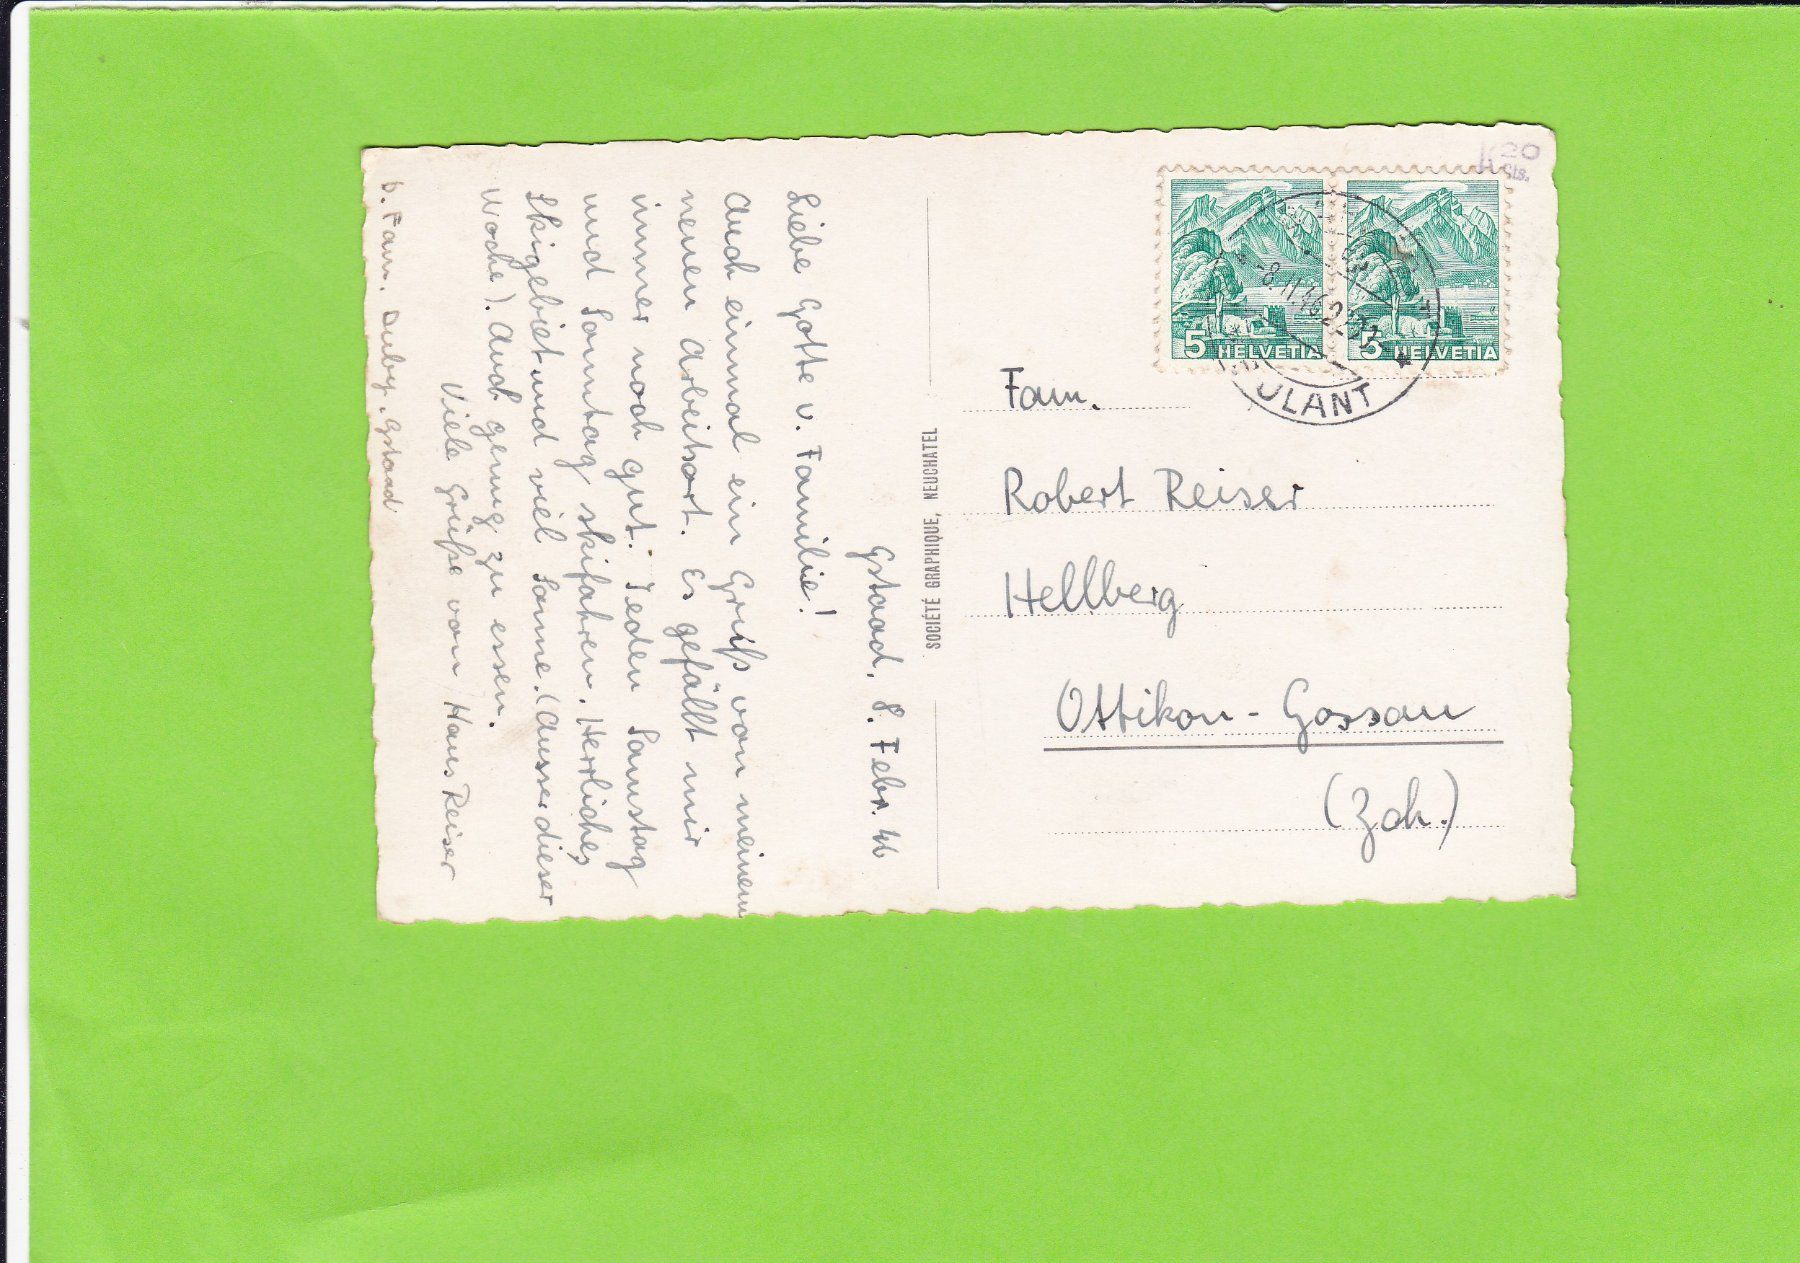 Gstaad, 8. Febr. 46
Liebe Gotte u. Familie!
Auch einmal ein Gruß von meinem
neuen Arbeitsort. Es gefällt mir
immer noch gut. Jeden Samstag
und Sonntag skifahren. Herrliches
Skigebiet und viel Sonne. (Ausser dieser
Woche). Auch genug zu essen.
Viele Grüße von Hans Reiser
b. Fam. Auby, Gstaad
SOCIÉTÉ GRAPHIQUE, NEUCHATEL
K20
Cts.
5 HELVETIA
5 HELVETIA
-8.II.46 22
ULANT
Fam.
Robert Reiser
Hellberg
Ottikon - Gossau
(Zch.)